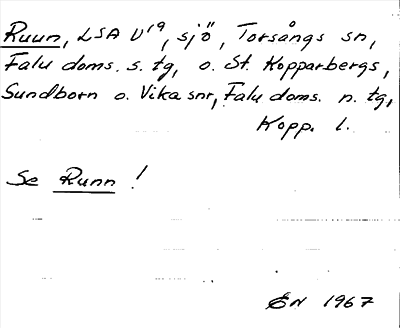 Ruun, LSA U¹⁹, sjö, Torsångs sn,
Falu doms. s. tg, o. St. Kopparbergs,
Sundborn o. Vika snr, Falu doms. n. tg,
Kopp. l.
Se Runn !
EN 1967